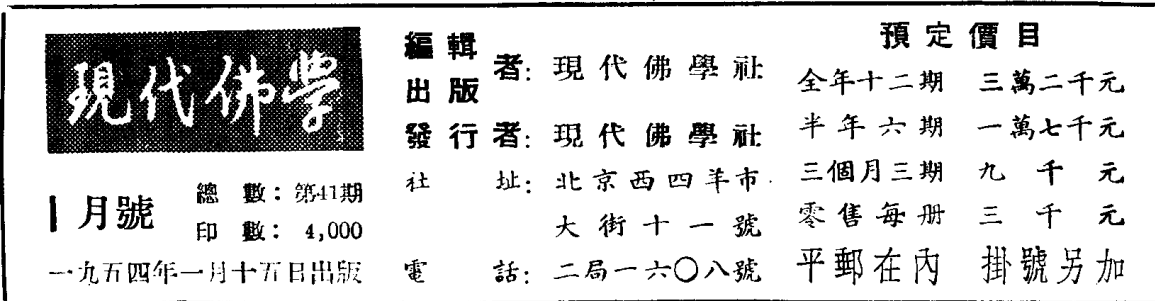 現代佛學
1月號
總數：第41期
印數：4,000
一九五四年一月十五日出版
編輯
出版
者：現代佛學社
發行者：現代佛學社
社址：北京西四羊市
大街十一號
電話：二局一六〇八號
預定價目
全年十二期 三萬二千元
半年六期 一萬七千元
三個月三期 九千元
零售每册 三千元
平郵在內 掛號另加